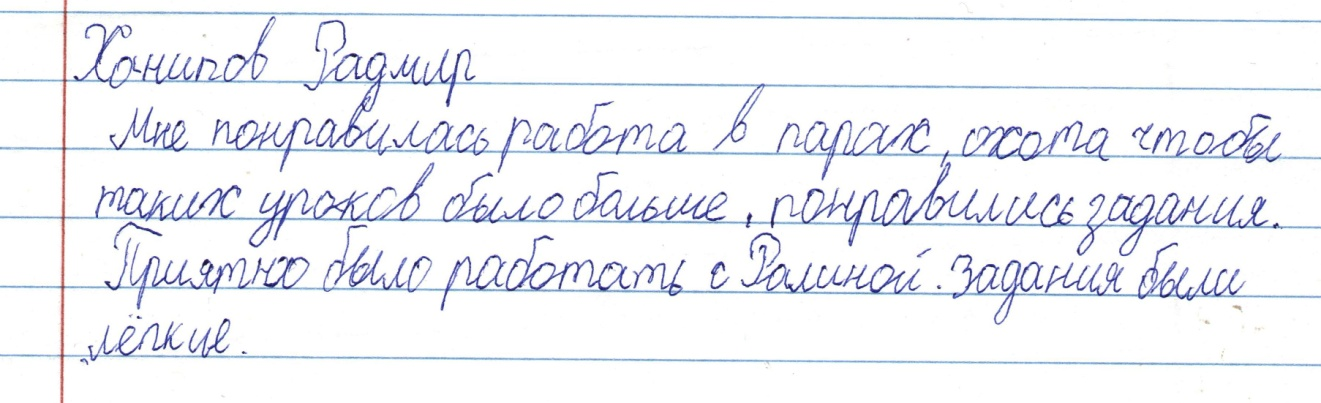 Ханипов Радмир
Мне понравилась работа в парах, охота чтобы
таких уроков было больше, понравились задания.
Приятно было работать с Ралиной. Задания были
лёгкие.